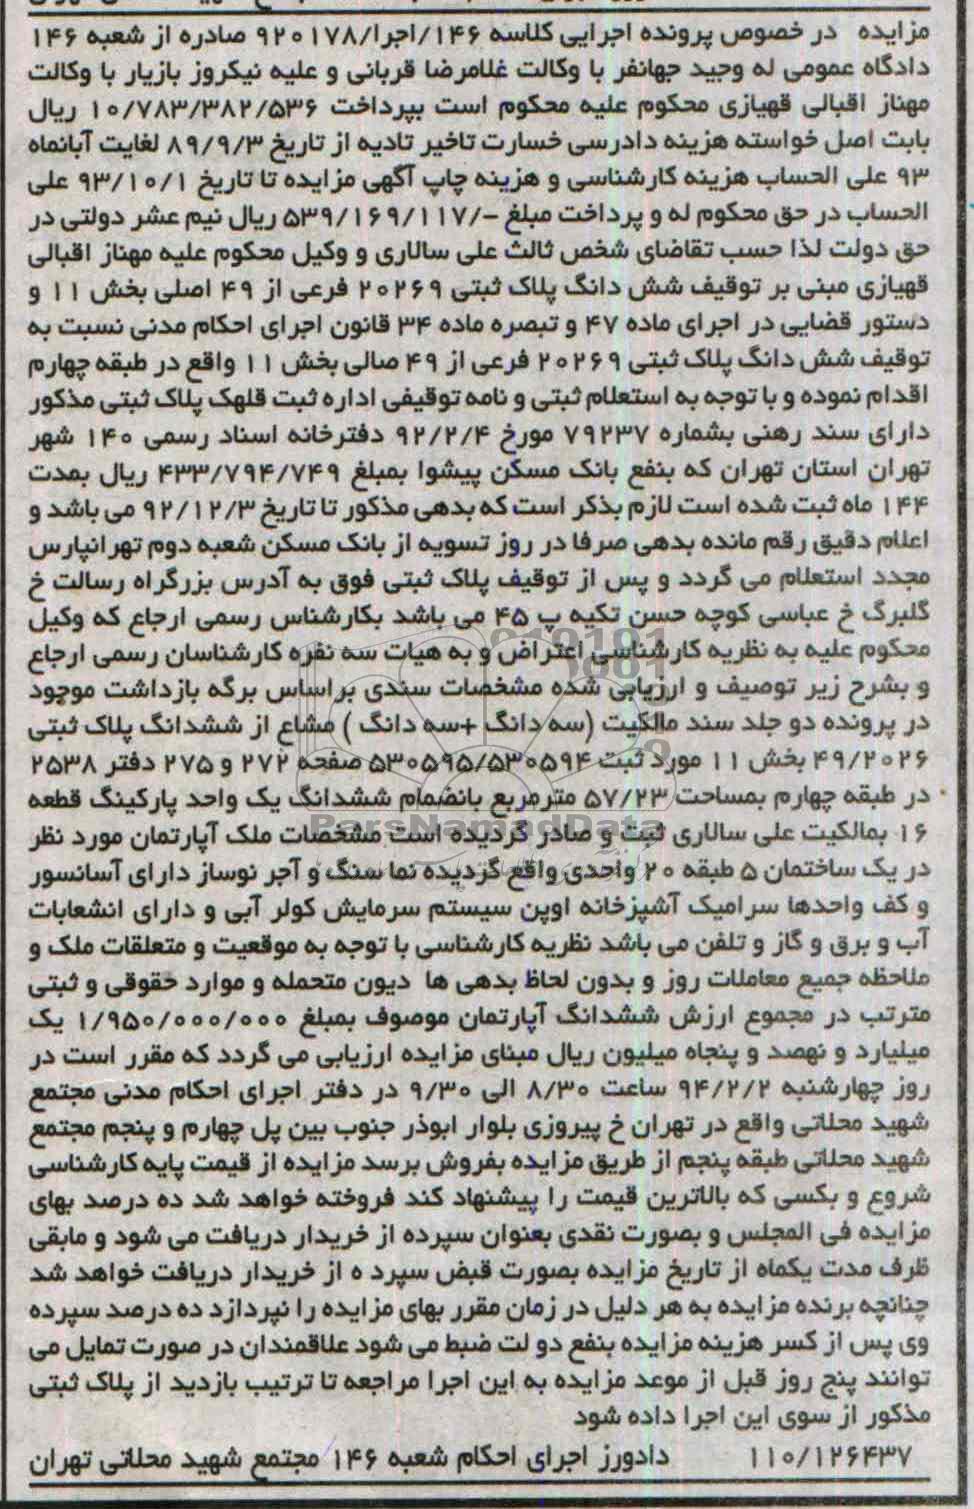 مزایده در خصوص پرونده اجرایی کلاسه ۱۴۶/اجرا/۹۲۰۱۷۸ صادره از شعبه ۱۴۶
دادگاه عمومی له وجید جهانفر با وکالت غلامرضا قربانی و علیه نیکروز بازیار با وکالت
مهناز اقبالی قهیازی محکوم علیه محکوم است بپرداخت ۱۰/۷۸۳/۳۸۲/۵۳۶ ریال
بابت اصل خواسته هزینه دادرسی خسارت تاخیر تادیه از تاریخ ۸۹/۹/۳ لغایت آبانماه
۹۳ علی الحساب هزینه کارشناسی و هزینه چاپ آگهی مزایده تا تاریخ ۹۳/۱۰/۱ علی
الحساب در حق محکوم له و پرداخت مبلغ -/۵۳۹/۱۶۹/۱۱۷ ریال نیم عشر دولتی در
حق دولت لذا حسب تقاضای شخص ثالث علی سالاری و وکیل محکوم علیه مهناز اقبالی
قهیازی مبنی بر توقیف شش دانگ پلاک ثبتی ۲۰۲۶۹ فرعی از ۴۹ اصلی بخش ۱۱ و
دستور قضایی در اجرای ماده ۴۷ و تبصره ماده ۳۴ قانون اجرای احکام مدنی نسبت به
توقیف شش دانگ پلاک ثبتی ۲۰۲۶۹ فرعی از ۴۹ صالی بخش ۱۱ واقع در طبقه چهارم
اقدام نموده و با توجه به استعلام ثبتی و نامه توقیفی اداره ثبت قلهک پلاک ثبتی مذکور
دارای سند رهنی بشماره ۷۹۲۳۷ مورخ ۹۲/۲/۴ دفترخانه اسناد رسمی ۱۴۰ شهر
تهران استان تهران که بنفع بانک مسکن پیشوا بمبلغ ۴۳۳/۷۹۴/۷۴۹ ریال بمدت
۱۴۴ ماه ثبت شده است لازم بذکر است که بدهی مذکور تا تاریخ ۹۲/۱۲/۳ می باشد و
اعلام دقیق رقم مانده بدهی صرفا در روز تسویه از بانک مسکن شعبه دوم تهرانپارس
مجدد استعلام می گردد و پس از توقیف پلاک ثبتی فوق به آدرس بزرگراه رسالت خ
گلبرگ خ عباسی کوچه حسن تکیه پ ۴۵ می باشد بکارشناس رسمی ارجاع که وکیل
محکوم علیه به نظریه کارشناسی اعتراض و به هیات سه نفره کارشناسان رسمی ارجاع
و بشرح زیر توصیف و ارزیابی شده مشخصات سندی براساس برگه بازداشت موجود
در پرونده دو جلد سند مالکیت (سه دانگ +سه دانگ ) مشاع از ششدانگ پلاک ثبتی
۴۹/۲۰۲۶ بخش ۱۱ مورد ثبت ۵۳۰۵۹۵/۵۳۰۵۹۴ صفحه ۲۷۲ و ۲۷۵ دفتر ۲۵۳۸
در طبقه چهارم بمساحت ۵۷/۲۳ مترمربع بانضمام ششدانگ یک واحد پارکینگ قطعه
ParsNamadData
۱۶ بمالکیت علی سالاری ثبت و صادر گردیده است مشخصات ملک آپارتمان مورد نظر
در یک ساختمان ۵ طبقه ۲۰ واحدی واقع گردیده نما سنگ و آجر نوساز دارای آسانسور
و کف واحدها سرامیک آشپزخانه اوپن سیستم سرمایش کولر آبی و دارای انشعابات
آب و برق و گاز و تلفن می باشد نظریه کارشناسی با توجه به موقعیت و متعلقات ملک و
ملاحظه جمیع معاملات روز و بدون لحاظ بدهی ها دیون متحمله و موارد حقوقی و ثبتی
مترتب در مجموع ارزش ششدانگ آپارتمان موصوف بمبلغ ۱/۹۵۰/۰۰۰/۰۰۰ یک
میلیارد و نهصد و پنجاه میلیون ریال مبنای مزایده ارزیابی می گردد که مقرر است در
روز چهارشنبه ۹۴/۲/۲ ساعت ۸/۳۰ الی ۹/۳۰ در دفتر اجرای احکام مدنی مجتمع
شهید محلاتی واقع در تهران خ پیروزی بلوار ابوذر جنوب بین پل چهارم و پنجم مجتمع
شهید محلاتی طبقه پنجم از طریق مزایده بفروش برسد مزایده از قیمت پایه کارشناسی
شروع و بکسی که بالاترین قیمت را پیشنهاد کند فروخته خواهد شد ده درصد بهای
مزایده فی المجلس و بصورت نقدی بعنوان سپرده از خریدار دریافت می شود و مابقی
ظرف مدت یکماه از تاریخ مزایده بصورت قبض سپرد ه از خریدار دریافت خواهد شد
چنانچه برنده مزایده به هر دلیل در زمان مقرر بهای مزایده را نپردازد ده درصد سپرده
وی پس از کسر هزینه مزایده بنفع دو لت ضبط می شود علاقمندان در صورت تمایل می
توانند پنج روز قبل از موعد مزایده به این اجرا مراجعه تا ترتیب بازدید از پلاک ثبتی
مذکور از سوی این اجرا داده شود
۱۱۰/۱۲۶۴۳۷ دادورز اجرای احکام شعبه ۱۴۶ مجتمع شهید محلاتی تهران